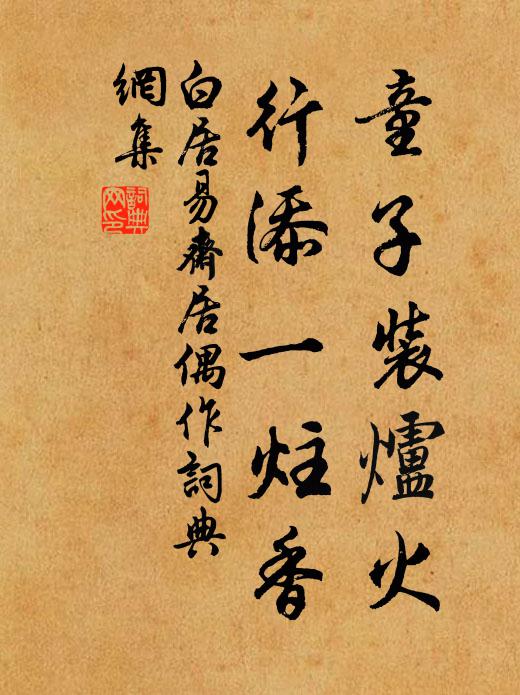 童子裝爐火
行添一炷香
白居易齋居偶作詞典
網集
詞典
網印